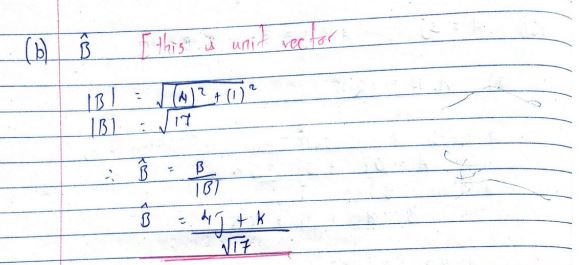 (b) B̂ [this is unit vector
|B| = √(4)² + (1)²
|B| = √17
∴ B̂ = B / |B|
B̂ = 4j + k / √17